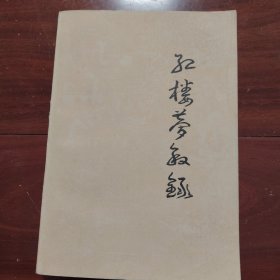 红楼梦叙録